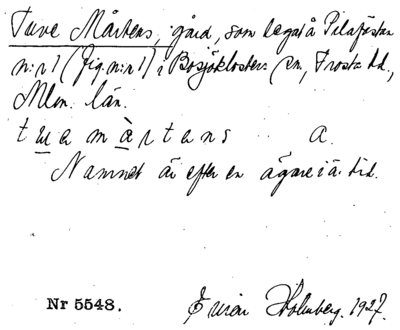 Tuve Mårtens, gård, som legat å Pilafästan
n:r 1 (fig. n:r 1) i Bosjöklosters sn, Frosta hd.,
Mlm. län.
tuə màrtens a.
Namnet är efter en ägare i ä. tid.
Nr 5548. Holmberg. 1927.